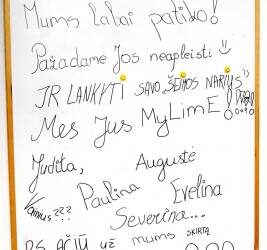 Mums labai patiko!
Pažadame Jos neapleisti :)
IR LANKYTI SAVO „ŠEIMOS NARIUS“!)
Mes Jus MyLimE!
Judita, Augustė
Paulina Evelina
Vainius??? Severina...
PS AČIŪ UŽ mums SKIRTĄ